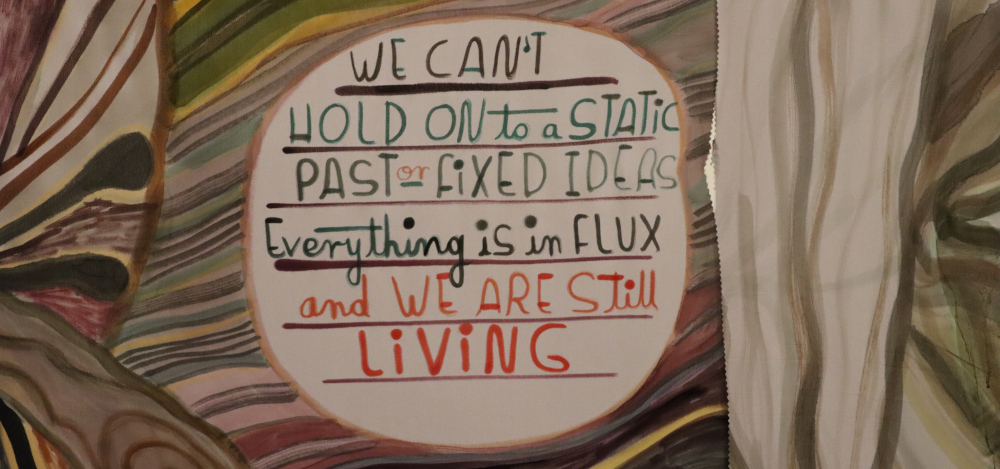 WE CAN'T
HOLD ON to a STATiC
PAST or FiXED IDEAS
Everything is in FLUX
and WE ARE Still
LiViNG